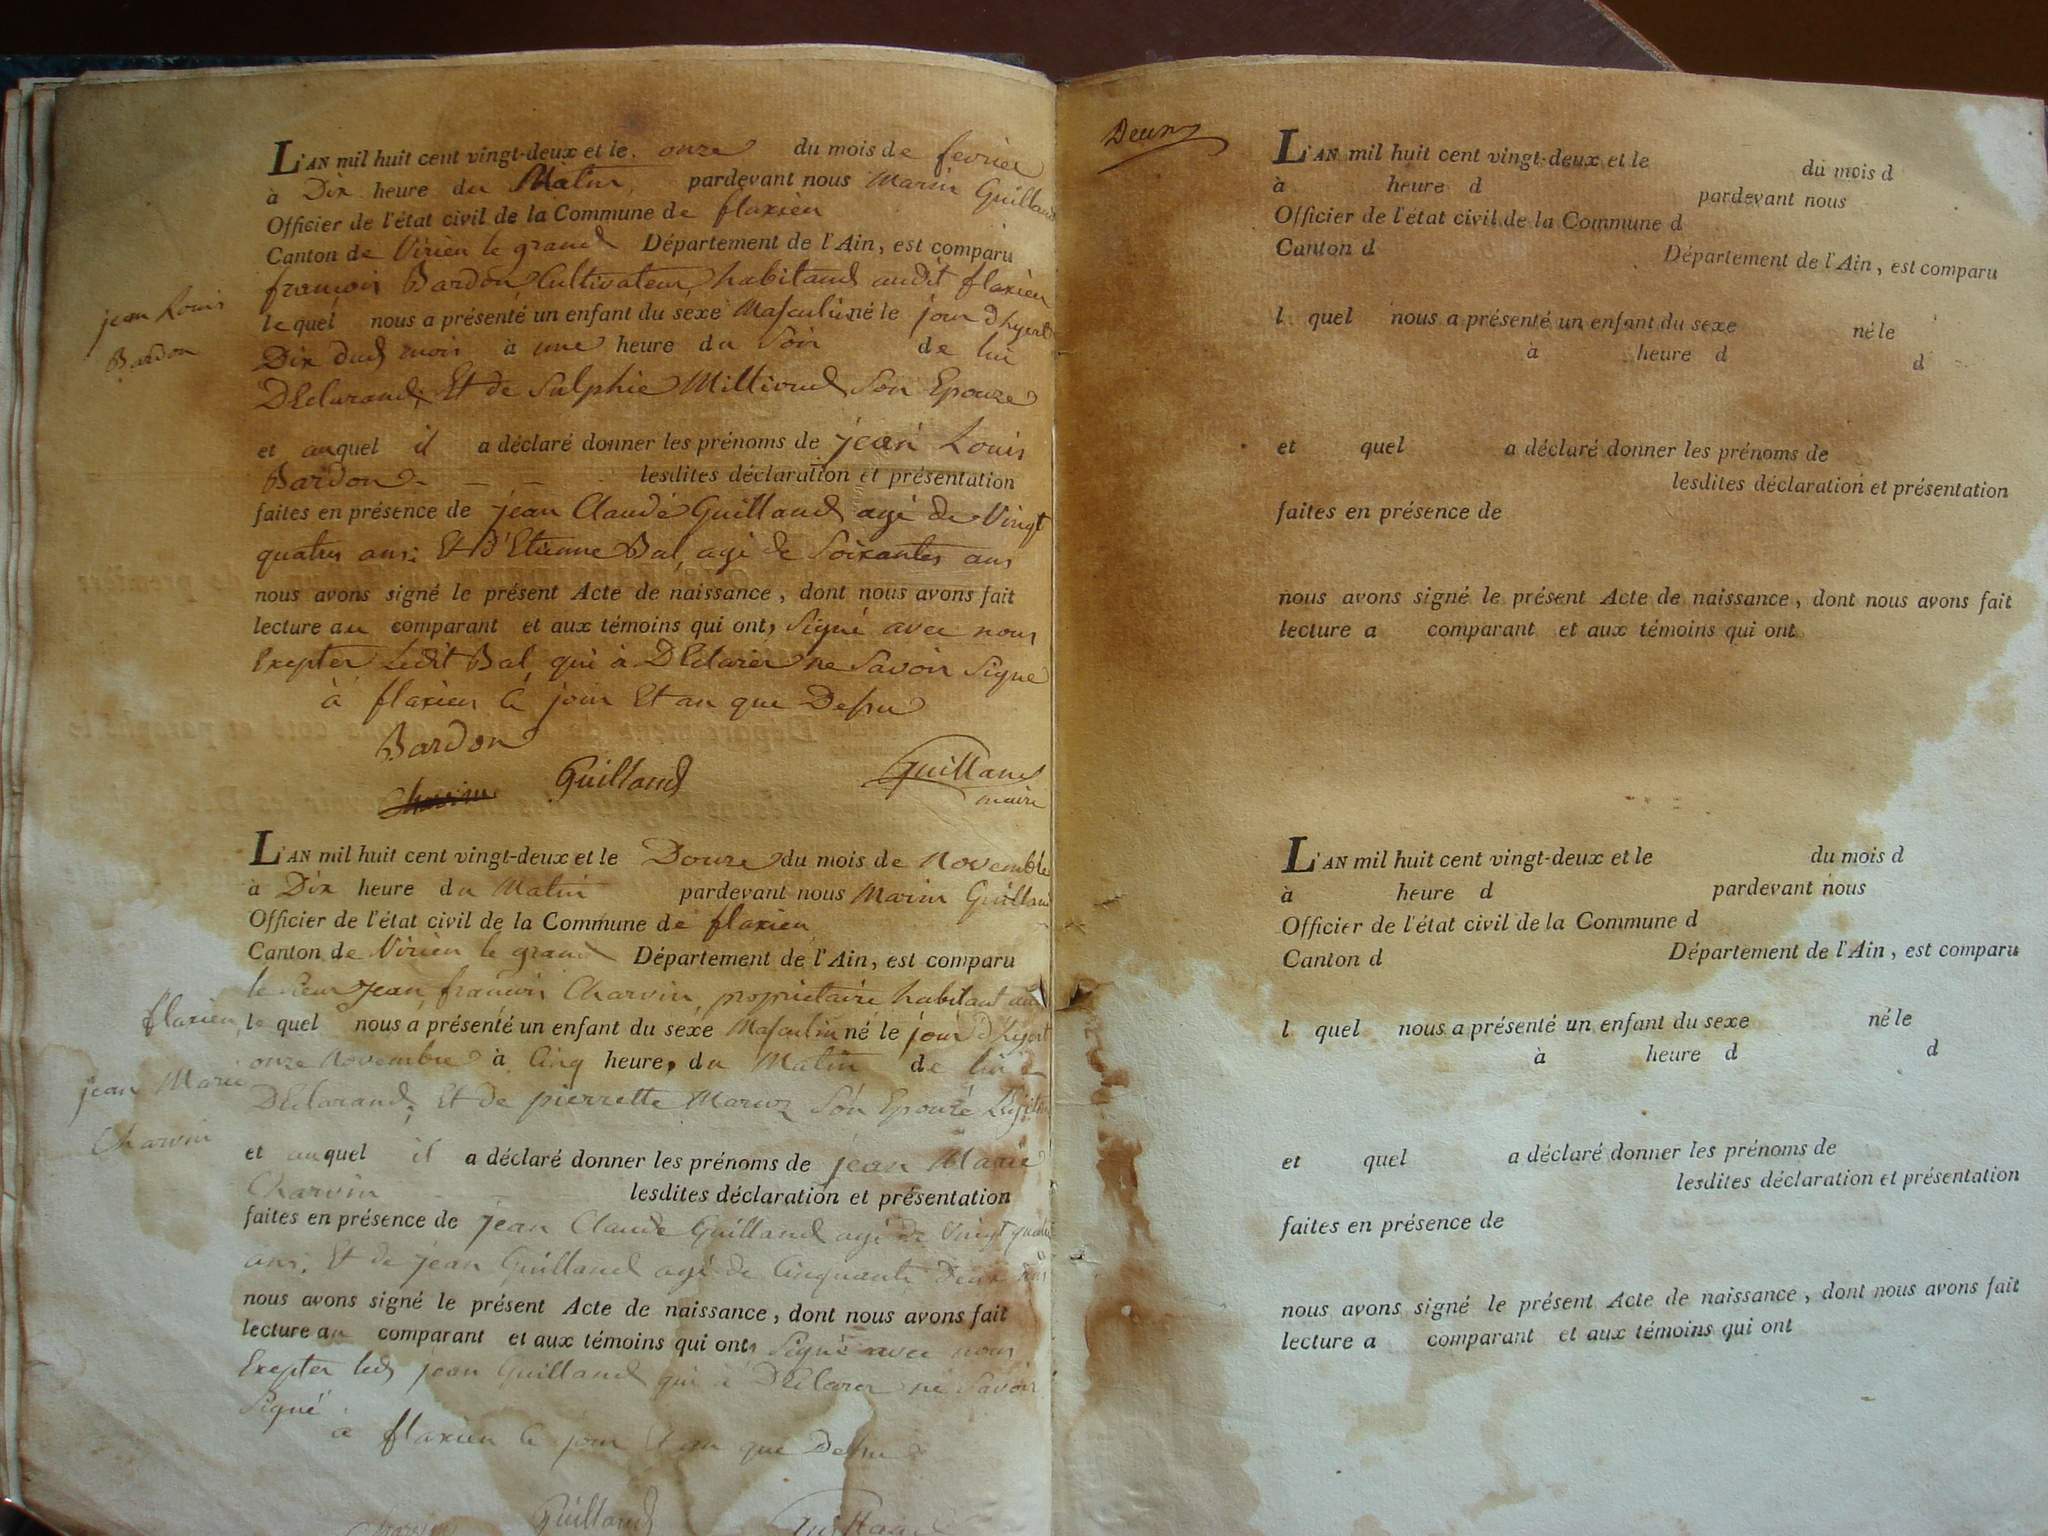 L'AN mil huit cent vingt-deux et le onze du mois de fevrier
à Dix heure du Matin, pardevant nous Marin Guilland
Officier de l'état civil de la Commune de flaxieu
Canton de Virieu le grand Département de l'Ain, est comparu
francois Bardon Cultivateur habitand audit flaxieu
le quel nous a présenté un enfant du sexe Masculin né le jour dhyert
Dix dud mois à une heure du Soir de lui
DEclarand, Et de Sulphie Millioud Son Epouze
jean Louis
Bardon
et auquel il a déclaré donner les prénoms de jean Louis
Bardon lesdites déclaration et présentation
faites en présence de jean Claude Guilland agé de Vingt
quatres ans; Et d'Etienne Bal, agé de Soixantes ans
nous avons signé le présent Acte de naissance, dont nous avons fait
lecture au comparant et aux témoins qui ont, Signé avec nous
Exepter Ledit Bal qui à DEclarer ne Savoir Signe
à flaxieu le jour Et an que Defsu
Bardon
Charvin Guilland Guilland
maire
L'AN mil huit cent vingt-deux et le Douze du mois de Novembre
à Dix heure du Matin pardevant nous Marin Guilland
Officier de l'état civil de la Commune de flaxieu
Canton de Virieu le grand Département de l'Ain, est comparu
le Sieur jean francois Charvin, proprietaire habitant aud
flaxieu le quel nous a présenté un enfant du sexe Masculin né le jour dhyert
onze Novembre à Cinq heure, du Matin de lui
DEclarand, Et de pierrette Son Epouze
jean Marie
Charvin
et auquel il a déclaré donner les prénoms de jean Marie
Charvin lesdites déclaration et présentation
faites en présence de jean Claude Guilland agé de Vingt quatre
ans; Et de jean Guilland agé de Cinquante Deux ans
nous avons signé le présent Acte de naissance, dont nous avons fait
lecture au comparant et aux témoins qui ont, Signé avec nous
Exepter led jean Guilland qui à DEclarer ne Savoir
Signé
à flaxieu le jour Et an que Defsu
Charvin Guilland Guilland
Deux
L'AN mil huit cent vingt-deux et le du mois d
à heure d pardevant nous
Officier de l'état civil de la Commune d
Canton d Département de l'Ain, est comparu
l quel nous a présenté un enfant du sexe né le
à heure d d
et quel a déclaré donner les prénoms de
lesdites déclaration et présentation
faites en présence de
nous avons signé le présent Acte de naissance, dont nous avons fait
lecture a comparant et aux témoins qui ont
L'AN mil huit cent vingt-deux et le du mois d
à heure d pardevant nous
Officier de l'état civil de la Commune d
Canton d Département de l'Ain, est comparu
l quel nous a présenté un enfant du sexe né le
à heure d d
et quel a déclaré donner les prénoms de
lesdites déclaration et présentation
faites en présence de
nous avons signé le présent Acte de naissance, dont nous avons fait
lecture a comparant et aux témoins qui ont